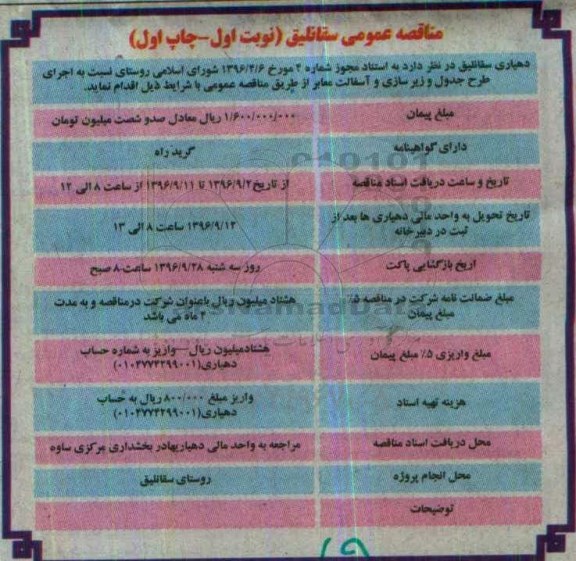 مناقصه عمومی سقانلیق (نوبت اول-چاپ اول)
دهیاری سقانلیق در نظر دارد به استناد مجوز شماره ۲ مورخ ۱۳۹۶/۴/۶ شورای اسلامی روستای نسبت به اجرای
طرح جدول و زیر سازی و آسفالت معابر از طریق مناقصه عمومی با شرایط ذیل اقدام نماید.
مبلغ پیمان ۱/۶۰۰/۰۰۰/۰۰۰ ریال معادل صدو شصت میلیون تومان
دارای گواهینامه گرید راه
تاریخ و ساعت دریافت اسناد مناقصه از تاریخ ۱۳۹۶/۹/۲ تا ۱۳۹۶/۹/۱۱ از ساعت ۸ الی ۱۲
تاریخ تحویل به واحد مالی دهیاری ها بعد از
ثبت در دبیرخانه ۱۳۹۶/۹/۱۲ ساعت ۸ الی ۱۳
اریخ بازگشایی پاکت روز سه شنبه ۱۳۹۶/۹/۲۸ ساعت ۸ صبح
مبلغ ضمانت نامه شرکت در مناقصه ۵٪
مبلغ پیمان
هشتاد میلیون ریال باعنوان شرکت درمناقصه و به مدت
۲ ماه می باشد
مبلغ واریزی ۵٪ مبلغ پیمان
هشتادمیلیون ریال-واریز به شماره حساب
دهیاری(۰۱۰۲۷۷۲۲۹۹۰۰۱)
هزینه تهیه اسناد
واریز مبلغ ۸۰۰/۰۰۰ ریال به حساب
دهیاری(۰۱۰۲۷۷۲۲۹۹۰۰۱)
محل دریافت اسناد مناقصه مراجعه به واحد مالی دهیاریهادر بخشداری مرکزی ساوه
محل انجام پروژه روستای سقانلیق
توضیحات
۱۹